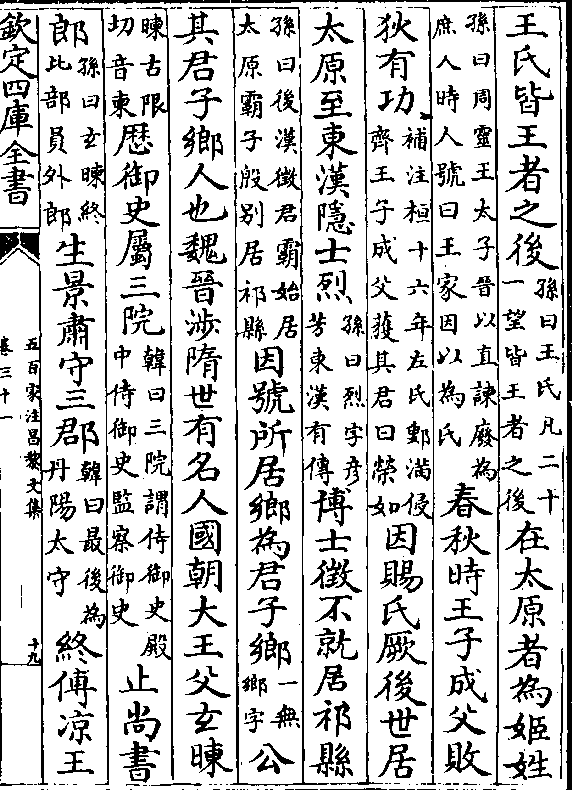 王氏皆王者之後孫曰王氏凡二十一望皆王者之後在太原者為姬姓
孫曰周靈王太子晉以直諫廢為庶人時人號曰王家因以為氏春秋時王子成父敗
狄有功補注桓十六年左氏鄋滿侵齊王子成父獲其君曰榮如因賜氏厥後世居
太原至東漢隱士烈孫曰烈字彥芳東漢有傳博士徵不就居祁縣
孫曰後漢徵君霸始居太原霸子殷别居祁縣因號所居鄉為君子鄉一無鄉字公
其君子鄉人也魏晉涉隋世有名人國朝大王父玄暕
暕古限切音東歴御史屬三院韓曰三院謂侍御史殿中侍御史監察御史止尚書
郎孫曰玄暕終比部員外郎生景肅守三郡韓曰最後為丹陽太守終傅凉王
欽定四庫全書
五百家注昌黎文集
卷三十一
十九